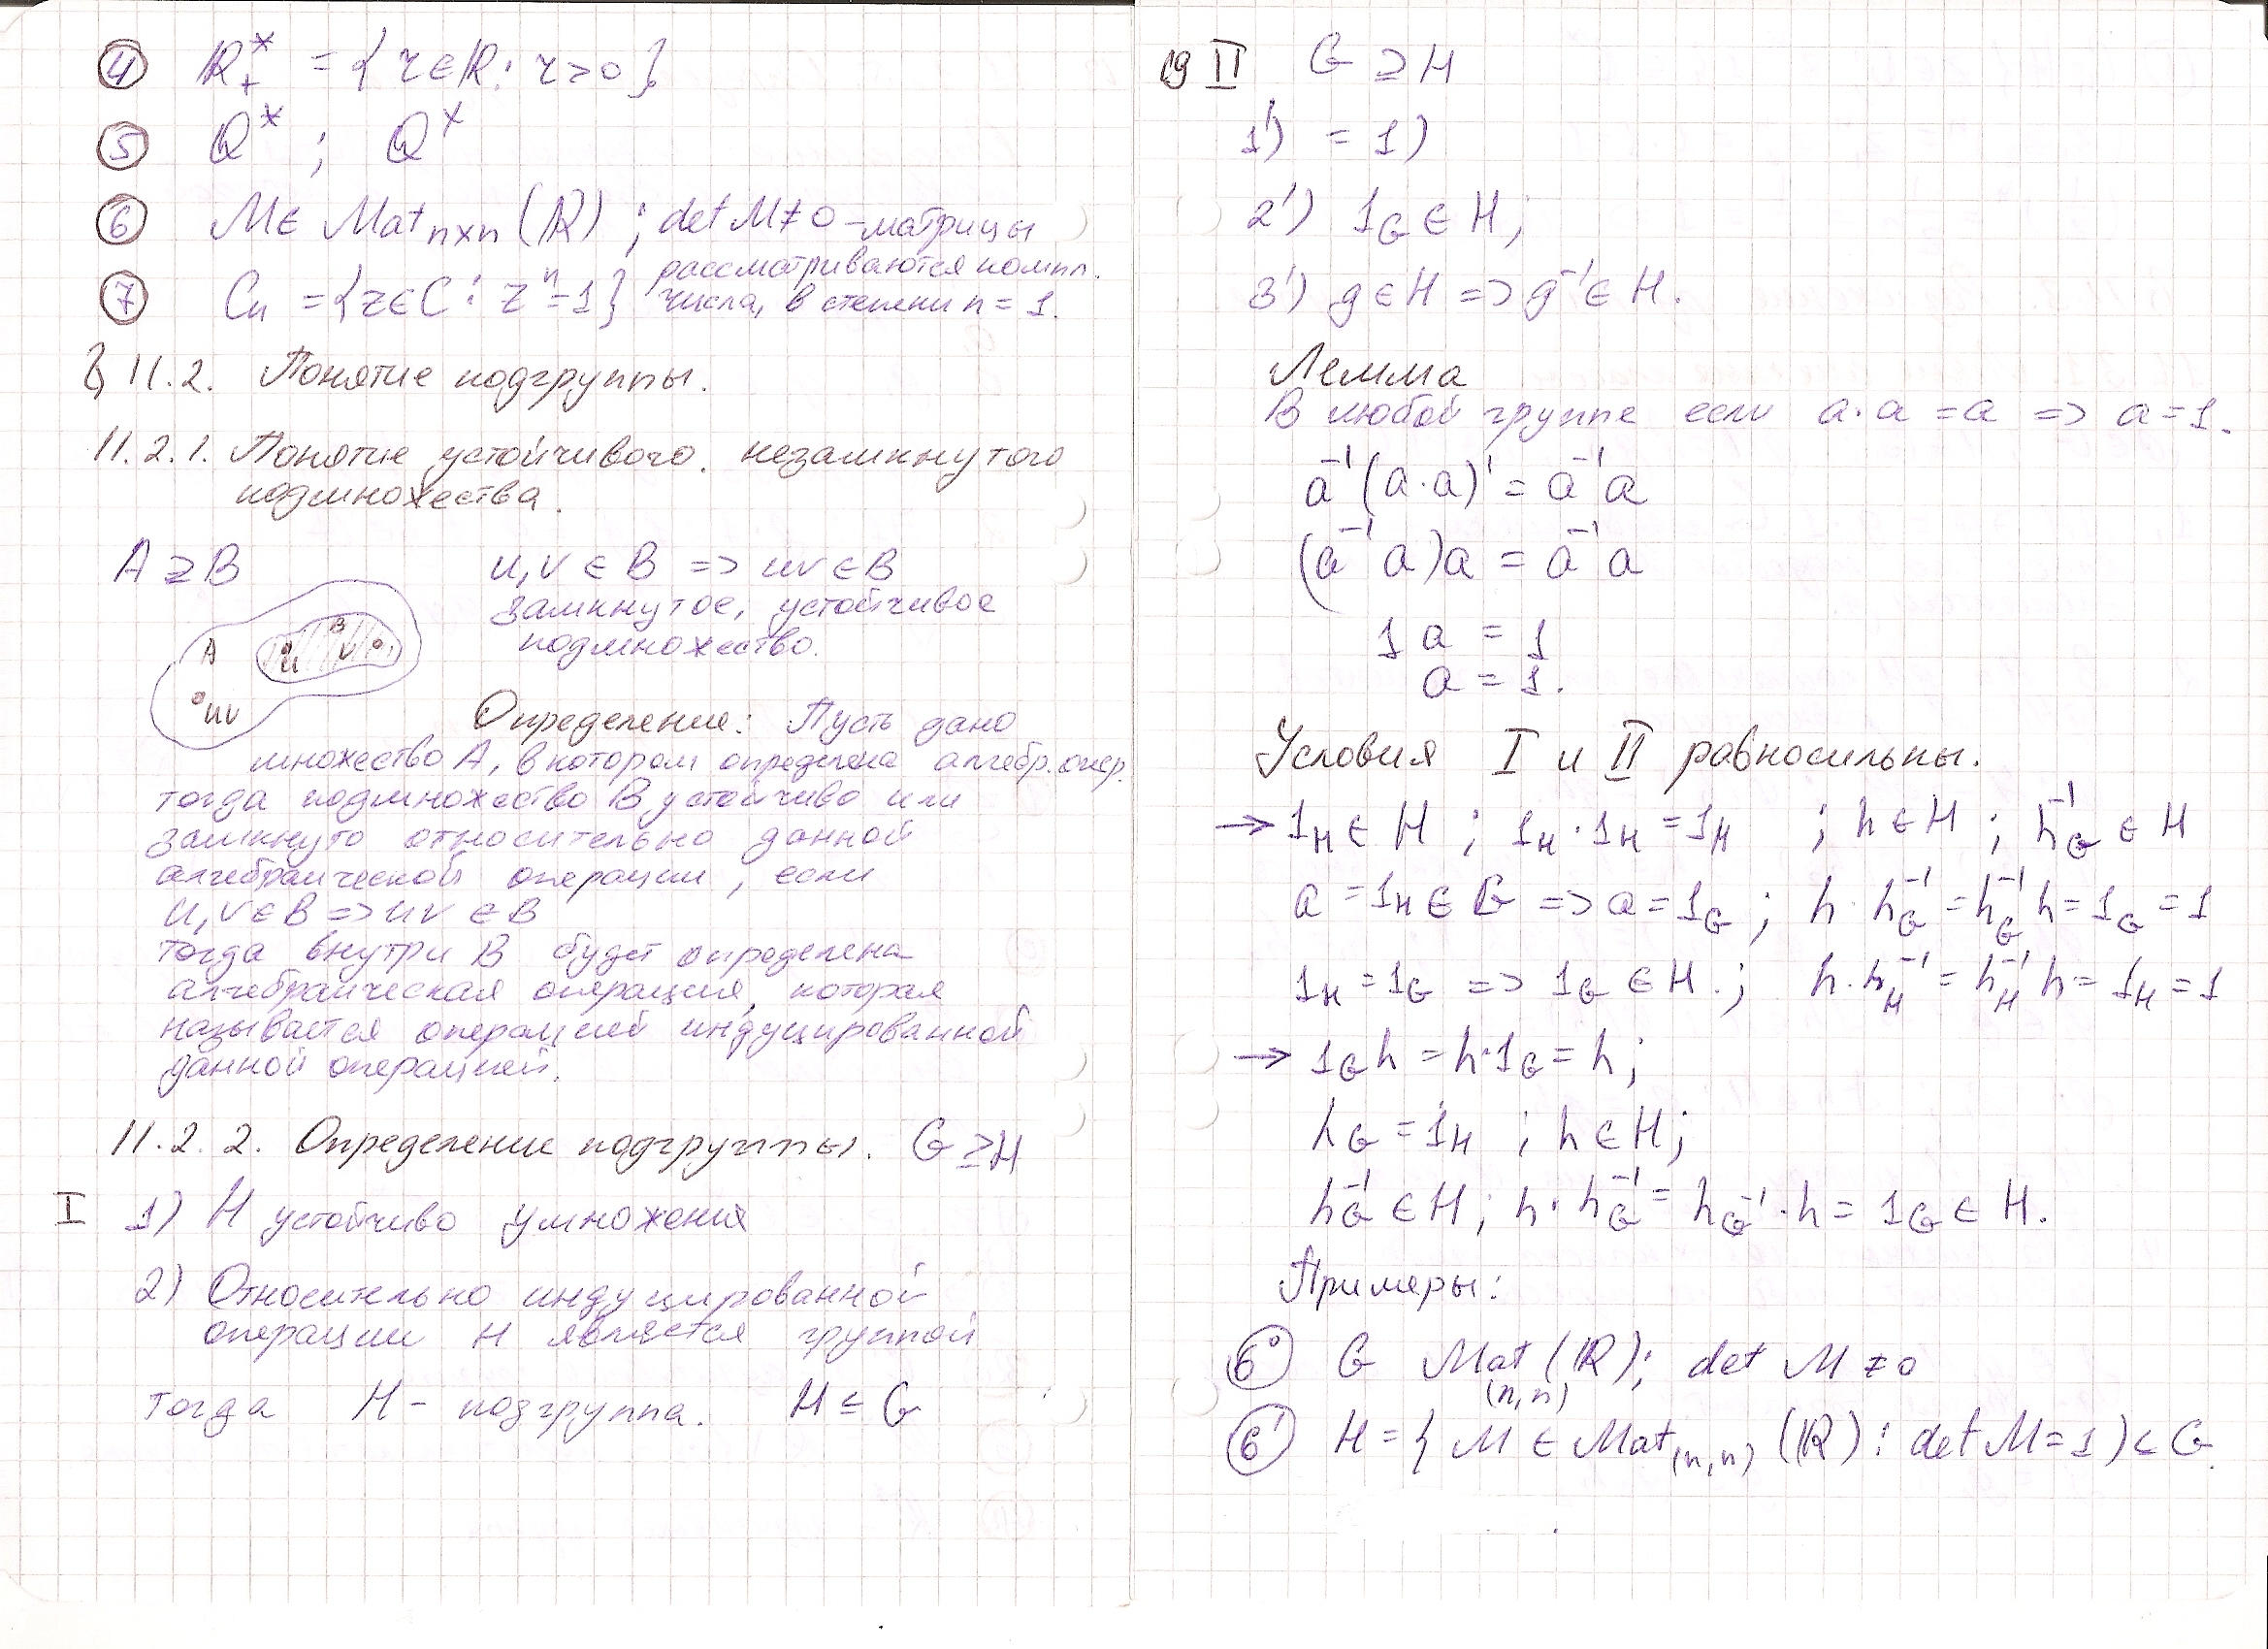 ④ R*₊ = {r ∈ R : r > 0}
⑤ Q* ; Q^×
⑥ M ∈ Mat n×n (R) ; det M ≠ 0 – матрицы
⑦ Cn = {z ∈ C : zⁿ = 1} рассматриваются компл. числа, в степени n = 1.
§ 11.2. Понятие подгруппы.
11.2.1. Понятие устойчивого. незамкнутого
подмножества.
A ⊇ B
u, v ∈ B => uv ∈ B
замкнутое, устойчивое
подмножество.
A B u v
uv
Определение: Пусть дано
множество A, в котором определена алгебр. опер.
тогда подмножество B устойчиво или
замкнуто относительно данной
алгебраической операции, если
u, v ∈ B => uv ∈ B
тогда внутри B будет определена
алгебраическая операция, которая
называется операцией индуцированной
данной операцией.
11.2.2. Определение подгруппы. G ⊇ H
I 1) H устойчиво умножения
2) Относительно индуцированной
операции H является группой
тогда H – подгруппа. H ≤ G
19 II G ⊇ H
1') = 1)
2') 1_G ∈ H;
3') g ∈ H => g⁻¹ ∈ H.
Лемма
В любой группе если a·a = a => a = 1.
a⁻¹(a·a)' = a⁻¹a
(a⁻¹a)a = a⁻¹a
1 a = 1
a = 1.
Условия I и II равносильны.
→ 1_H ∈ H ; 1_H · 1_H = 1_H ; h ∈ H ; h_G⁻¹ ∈ H
a = 1_H ∈ G => a = 1_G ; h · h_G⁻¹ = h_G⁻¹ h = 1_G = 1
1_H = 1_G => 1_G ∈ H. ; h · h_H⁻¹ = h_H⁻¹ h = 1_H = 1
→ 1_G h = h·1_G = h;
h_G = 1_H ; h ∈ H;
h_G⁻¹ ∈ H; h · h_G⁻¹ = h_G⁻¹ · h = 1_G ∈ H.
Примеры:
6° G Mat (n,n) (R); det M ≠ 0
6' H = { M ∈ Mat (n,n) (R) : det M = 1) < G.